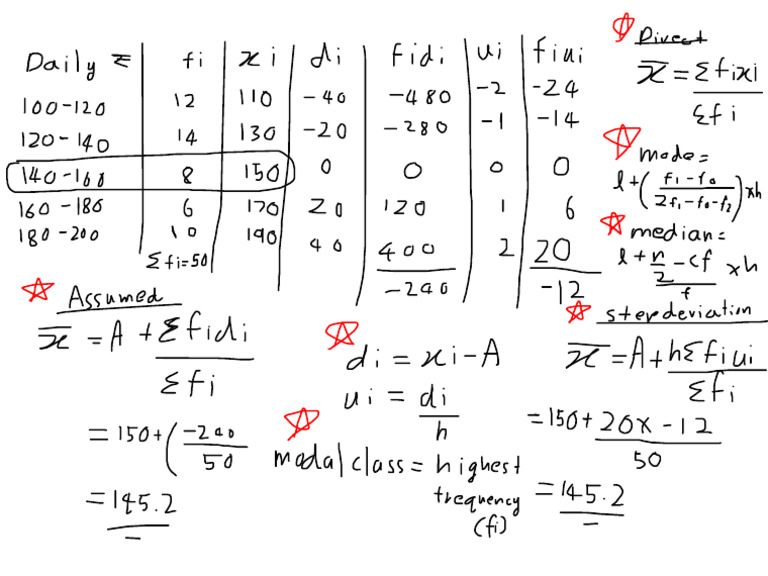 Daily ₹ fi xi di fidi ui fiui
100-120 12 110 -40 -480 -2 -24
120-140 14 130 -20 -280 -1 -14
140-160 8 150 0 0 0 0
160-180 6 170 20 120 1 6
180-200 10 190 40 400 2 20
Σfi=50 -240 -12
Direct
x̄ = Σfixi / Σfi
mode =
l+(f1-f0 / 2f1-f0-f2)×h
median =
l+ n/2 -cf / f ×h
Assumed
x̄ = A + Σfidi / Σfi
= 150+(-240 / 50
= 145.2
di = xi-A
ui = di / h
modal class = highest
frequency
(fi)
step deviation
x̄ = A+ hΣfiui / Σfi
= 150+ 20x -12 / 50
= 145.2